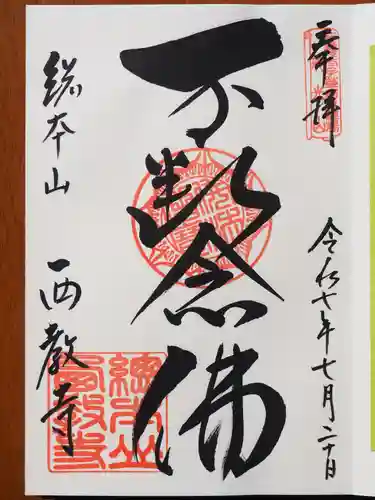 奉拝
令和七年七月二十日
不断念佛
総本山 西教寺
總本山
西教寺